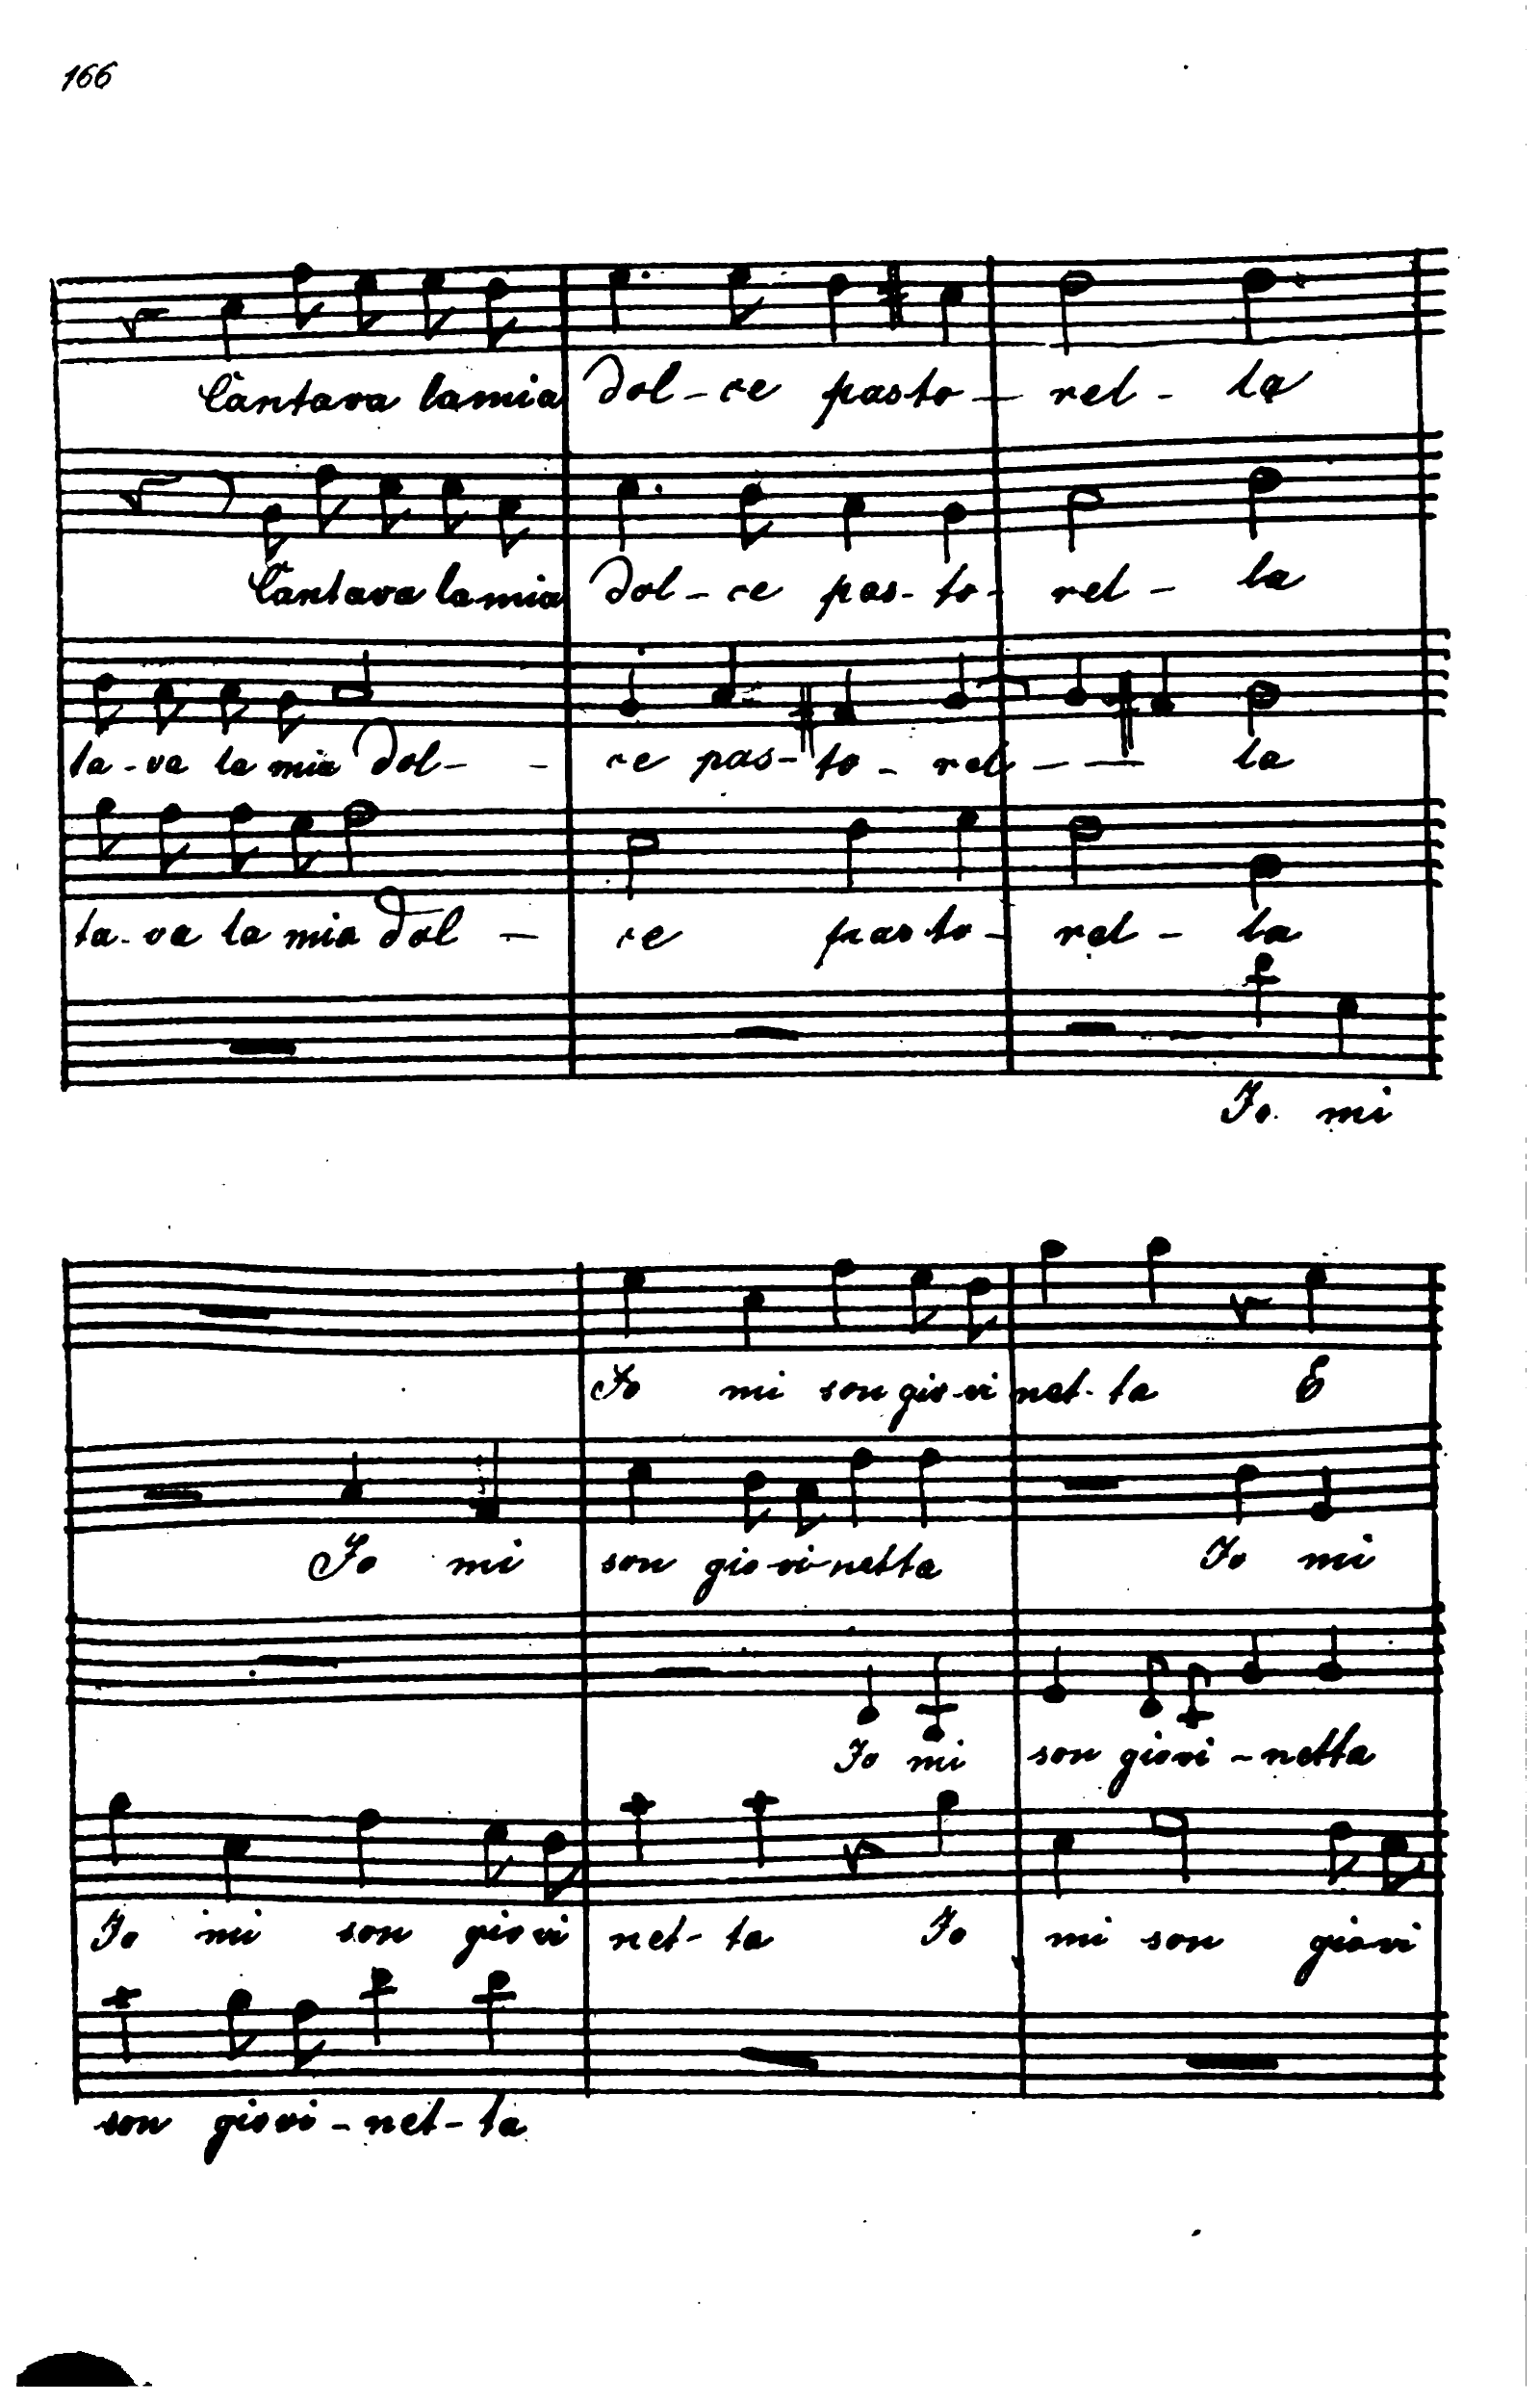 166
Cantava la mia dol - ce pasto - rel - la
Cantava la mia dol - ce pas - to - rel - la
ta - va la mia dol - - ce pas - to - rel - - la
ta - va la mia dol - ce pasto - rel - la
Io mi
Io mi son gio - vi net - ta E
Io mi son gio - vi - netta Io mi
Io mi son giovi - netta
Io mi son giovi net - ta Io mi son giovi
son giovi - net - ta